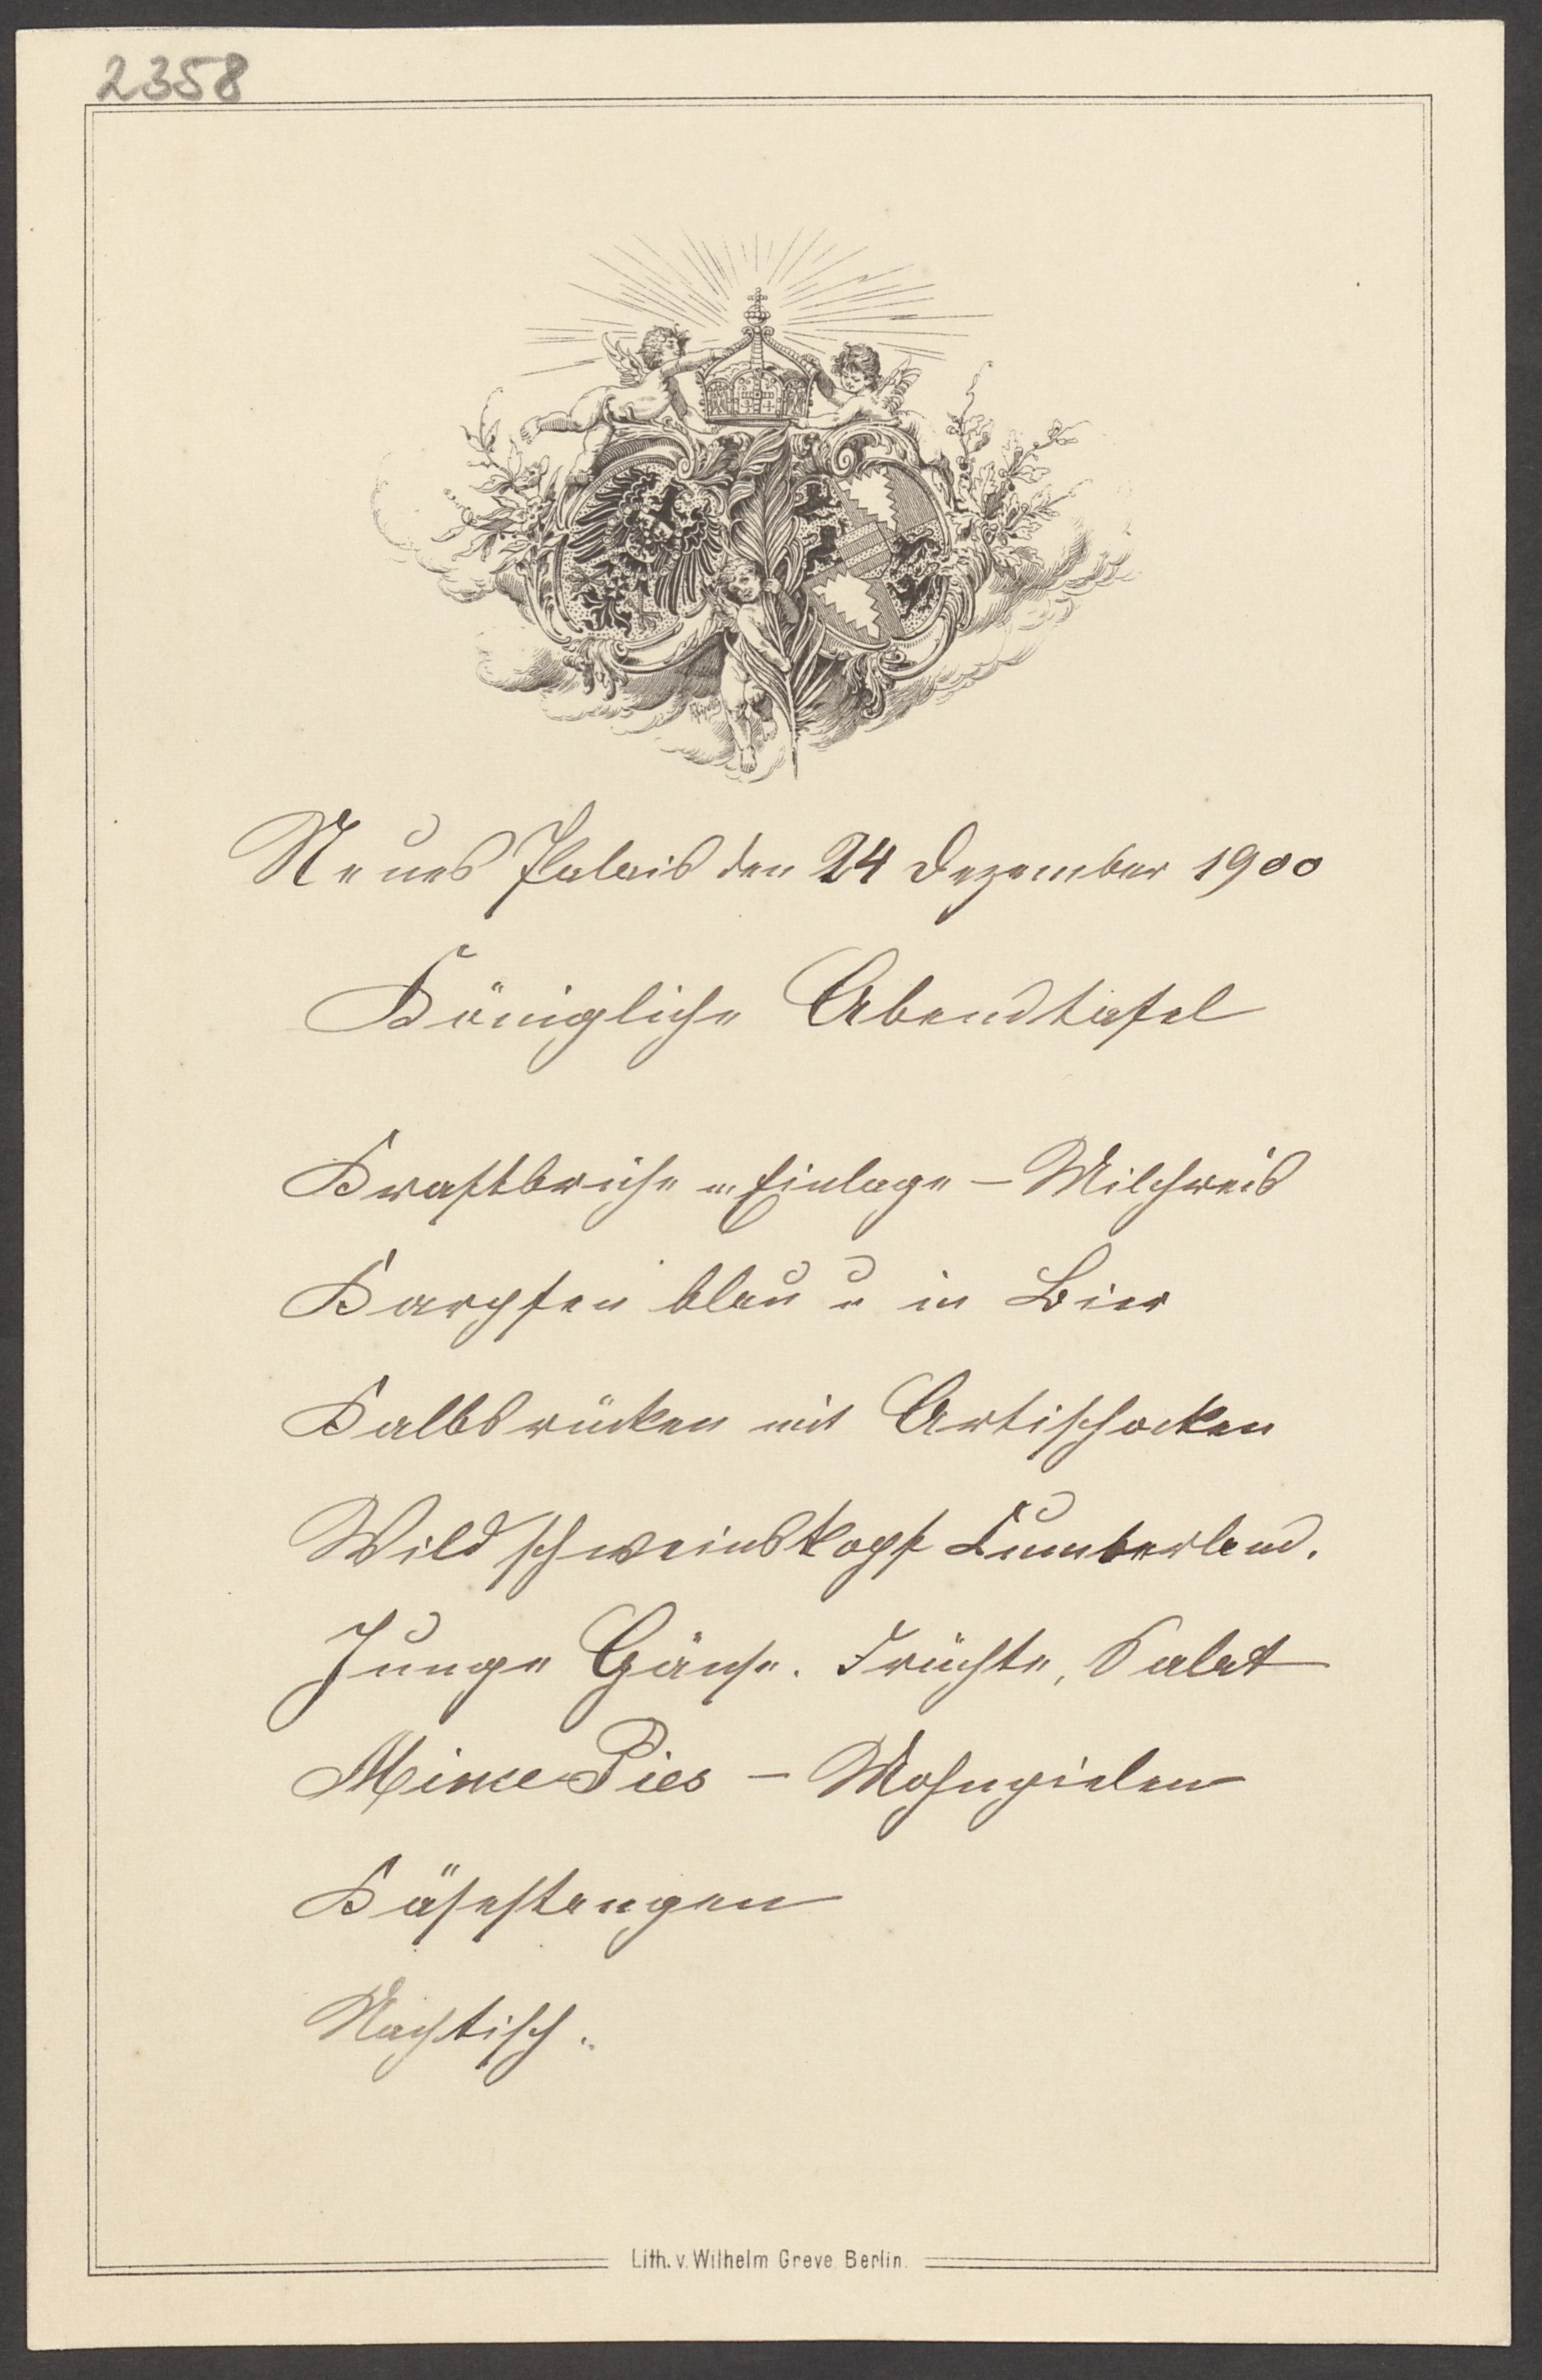 2358
Neues Palais den 24 Dezember 1900
Königliche Abendtafel
Kraftbrühe m Einlage – Milchreis
Karpfen blau u in Bier
Kalbsrücken mit Artischocken
Wildschweinskopf Cumberland.
Junge Gänse. Früchte, Salat
Mince Pies – Mohnpielen
Käsestangen
Nachtisch.
Lith. v. Wilhelm Greve. Berlin.